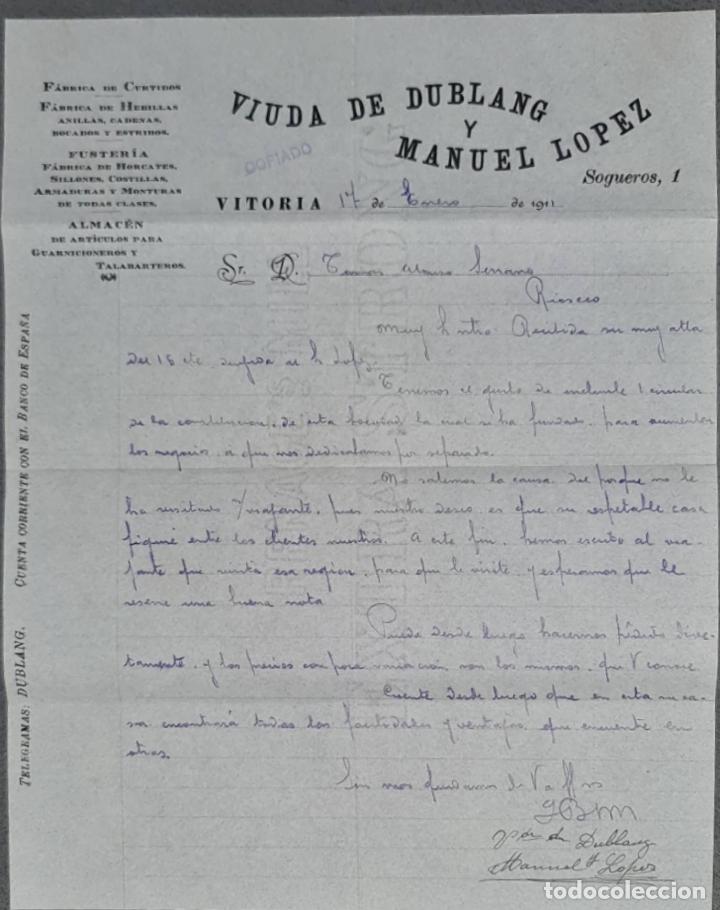 FÁBRICA DE CURTIDOS
FÁBRICA DE HEBILLAS
ANILLAS, CADENAS,
BOCADOS Y ESTRIBOS.
FUSTERÍA
FÁBRICA DE HORCATES,
SILLONES, COSTILLAS,
ARMADURAS Y MONTURAS
DE TODAS CLASES.
ALMACÉN
DE ARTÍCULOS PARA
GUARNICIONEROS Y
TALABARTEROS.
VIUDA DE DUBLANG
Y
MANUEL LOPEZ
COPIADO
Sogueros, 1
VITORIA 17 de Enero de 1911
Sr. D. Tomas Alonso Serrano
Rioseco
Muy Sr. ntro: Recibida su muy atta
del 15 cte dirijida al Sr Lopez,
Tenemos el gusto de incluirle 1 circular
de la constitucion de esta Sociedad la cual se ha fundado para aumentar
los negocios a que nos dedicabamos por separado.
No sabemos la causa del porque no le
ha visitado viajante, pues nuestro deseo es que su respetable casa
figure entre los clientes nuestros. A este fin, hemos escrito al via-
jante que visita esa region, para que le visite, y esperamos que le
reserve una buena nota
Puede desde luego hacernos pedido direc-
tamente y los precios con poca variacion son los mismos que V conoce
Cuente desde luego que en esta su ca-
sa encontrará todas las facilidades y ventajas que encuentre en
otras.
Sin mas quedamos de V affmos
Vda de Dublang
Manuel Lopez
TELEGRAMAS: DUBLANG. CUENTA CORRIENTE CON EL BANCO DE ESPAÑA
todocoleccion